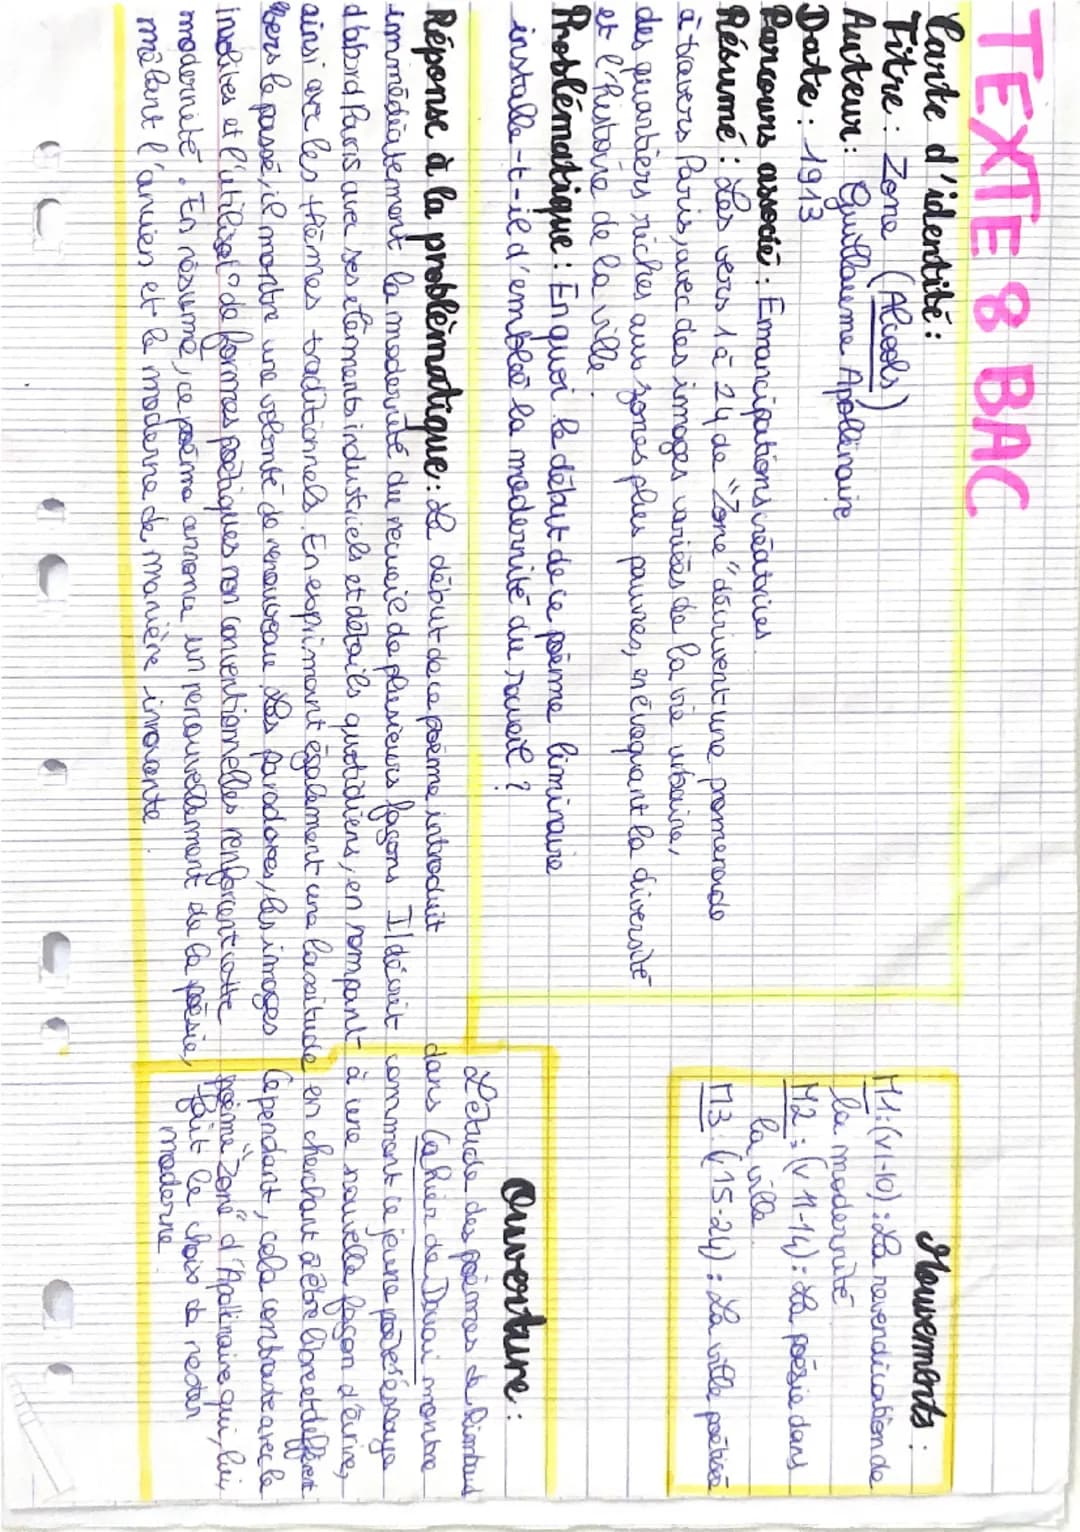 TEXTE 8 BAC
Carte d'identité :
Titre : Zone (Alcools)
Auteur : Guillaume Apollinaire
Date : 1913
Parcours associé : Emancipations créatrices.
Résumé : Les vers 1 à 24 de "Zone" décrivent une promenade
à travers Paris, avec des images variées de la vie urbaine,
des quartiers riches aux zones plus pauvres, en évoquant la diversité
et l'histoire de la ville.
Problématique : En quoi le début de ce poème liminaire
installe-t-il d'emblée la modernité du recueil ?
Mouvements :
M1 : (v1-10) : La revendication de
la modernité
M2 : (v 11-14) : La poésie dans
la ville.
M3 : (15-24) : La ville poétisée
Réponse à la problématique : Le début de ce poème introduit
immédiatement la modernité du recueil de plusieurs façons. Il décrit
d'abord Paris avec ses éléments industriels et détails quotidiens, en rompant
ainsi avec les thèmes traditionnels. En exprimant également une lassitude
vers le passé, il montre une volonté de renouveau. Les paradoxes, les images
insolites et l'utilisat° de formes poétiques non conventionnelles renforcent cette
modernité. En résumé, ce poème annonce un renouvellement de la poésie,
mêlant l'ancien et le moderne de manière innovante
Ouverture :
L'étude des poèmes de Rimbaud
dans Cahier de Douai montre
comment ce jeune poète essaye
à une nouvelle façon d'écrire,
en cherchant à être libre et différent
Cependant, cela contraste avec le
poème "Zone" d'Apollinaire qui, lui,
fait le choix de rester
moderne.